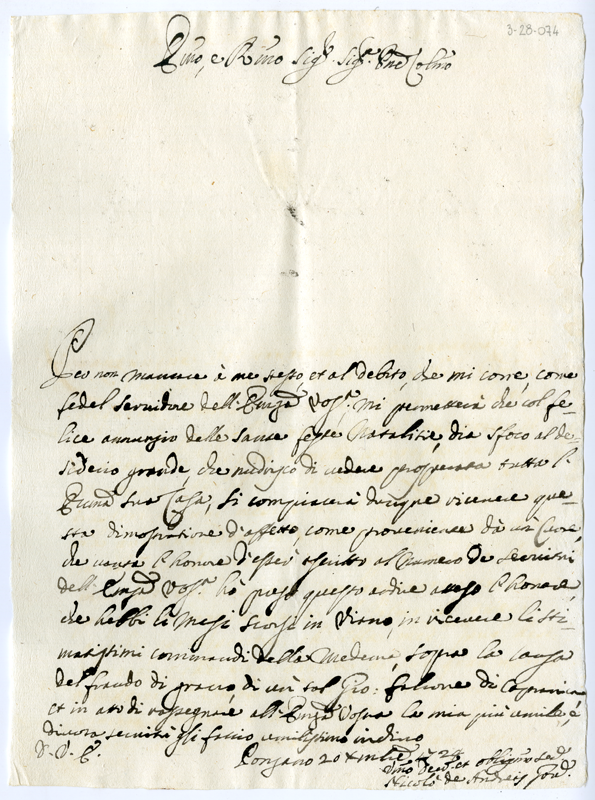 3-28-074
Emo, e Rmo Sigr. Sigr. Pne Colmo
Per non mancare à me stesso, et al debito, che mi corre, come
fedel servidore dell'Emza Vosa. mi permetterà che col fe-
lice annunzio delle sante feste Natalitie, dia sfoco al de-
siderio grande, che nudrisco di vedere prosperata tutta l'
Eccma sua Casa, si compiacerà dunque ricevere que-
sta dimostratione d'affetto, come proveniente dà un Cuore,
che vanta l'honore d'esser ascritto al numero de servitori
dell'Emza Vosa. hò preso questo ardire atteso l'honore,
che hebbi li Mesi scorsi in Viano, in ricevere li sti-
matissimi commandi della Medema, sopra la causa
del fraudo di grano, di un tal Gio: falcone di Capranica
et in atto di rassegnare all'Emza Vostra la mia più umile, e
divota servitù gli faccio umilissimo inchino
D. V. E.
Ponzano 20 Xmbre 1724
Umo Devmo. et obligmo sed.
Nicolò de Andreis Govr.